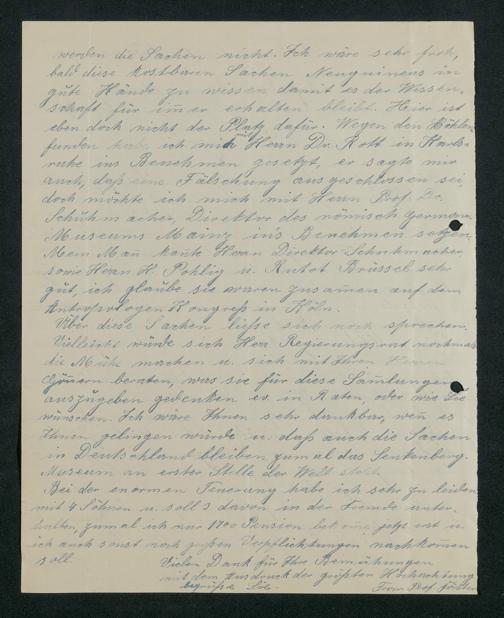 werden die Sachen nicht. Ich wäre sehr froh,
bald diese kostbaren Sachen Neuguineas in
gute Hände zu wissen damit es der Wissen,
schaft für im̅er erhalten bleibt. Hier ist
eben doch nicht der Platz dafür. Wegen den Höhlen
funden habe ich mich Herrn Dr. Rott in Karls-
ruhe ins Benehmen gesetzt, er sagte mir
auch, daß eine Fälschung ausgeschlossen sei,
doch möchte ich mich mit Herrn Prof. Dr.
Schuhmacher, Direktor des römisch german.
Museums Mainz ins Benehmen setzen.
Mein Man̅ kan̅te Herrn Direktor Schuhmacher
sowie Herrn H. Pohlig u. Rutot Brüssel sehr
gut, ich glaube sie waren zusam̅en auf dem
Antropologen Kongreß in Köln.
Über diese Sachen ließe sich noch sprechen.
Vielleicht würde sich Herr Regierungsrat nochmals
die Mühe machen u. sich mit Ihren Herren
Gön̅ern beraten, was sie für diese Sam̅lungen
auszugeben gedenken ev. in Raten, oder wie Sie
wünschen. Ich wäre Ihnen sehr dankbar, wen̅ es
Ihnen gelingen würde u. daß auch die Sachen
in Deutschland bleiben, zumal das Senkenberg-
Museum an erster Stelle der Welt steht.
Bei der enormen Teuerung habe ich sehr zu leiden
mit 4 Söhnen u. soll 3 davon in der Fremde unter-
halten, zumal ich nur 1700 Pension bekom̅e jetzt erst u.
ich auch sonst noch großen Verpflichtungen nachkom̅en
soll.
Vielen Dank für Ihre Bemühungen
mit dem Ausdruck der größten Hochachtung
begrüße Sie
Frau Prof.